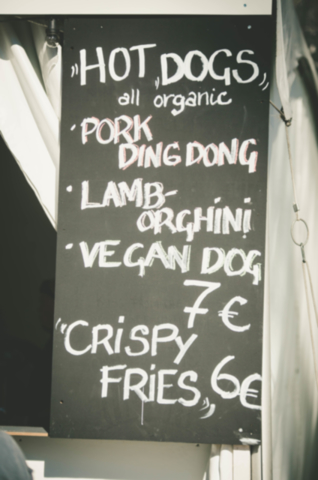 „HOT „DOGS„
all organic
· PORK
DING DONG
· LAMB-
ORGHINI
· VEGAN DOG
7€
"CRISPY
FRIES„ 6€